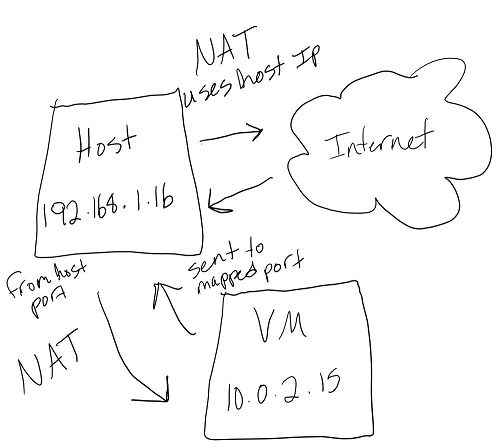 NAT
uses host Ip
Host
192.168.1.16
Internet
from host
port
sent to
mapped port
NAT
VM
10.0.2.15